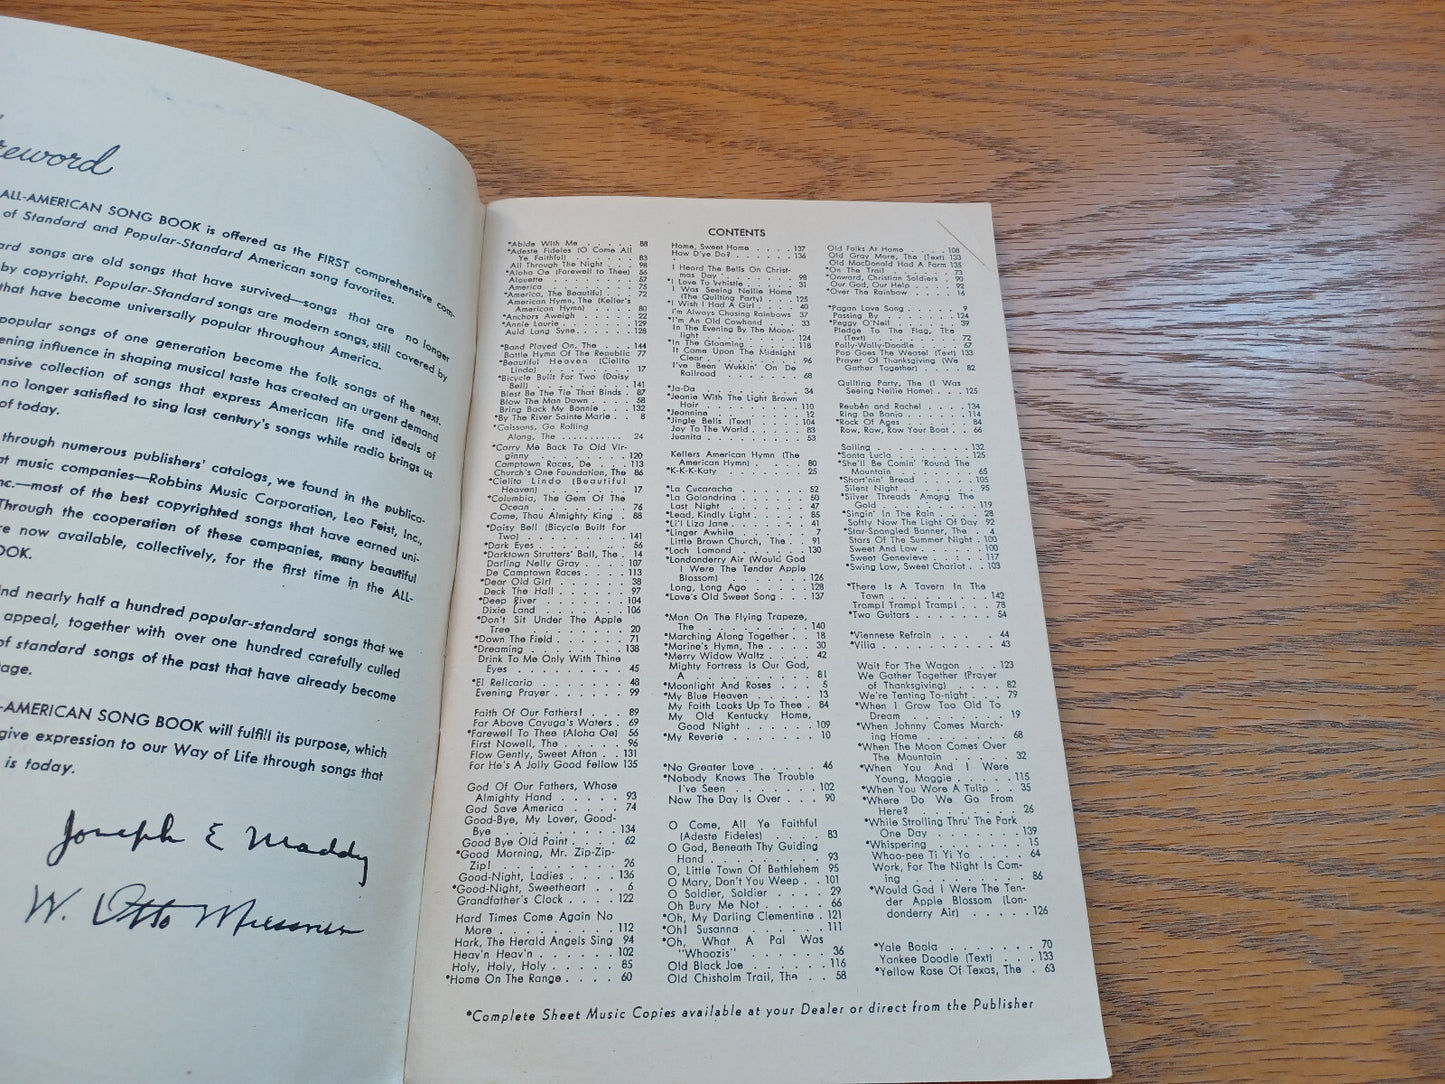 reword
ALL-AMERICAN SONG BOOK is offered as the FIRST comprehensive com-
of Standard and Popular-Standard American song favorites.
ard songs are old songs that have survived—songs that are no longer
by copyright. Popular-Standard songs are modern songs, still covered by
that have become universally popular throughout America.
popular songs of one generation become the folk songs of the next.
ening influence in shaping musical taste has created an urgent demand
ensive collection of songs that express American life and ideals of
no longer satisfied to sing last century's songs while radio brings us
of today.
through numerous publishers' catalogs, we found in the publica-
at music companies—Robbins Music Corporation, Leo Feist, Inc.,
nc.—most of the best copyrighted songs that have earned uni-
Through the cooperation of these companies, many beautiful
re now available, collectively, for the first time in the ALL-
OOK.
ind nearly half a hundred popular-standard songs that we
appeal, together with over one hundred carefully culled
of standard songs of the past that have already become
tage.
-AMERICAN SONG BOOK will fulfill its purpose, which
give expression to our Way of Life through songs that
is today.
Joseph E Maddy
W. Otto Miessner
CONTENTS
*Abide With Me . . . . . 88
*Adeste Fideles (O Come All
Ye Faithful) . . . . . 83
All Through The Night . . . 98
*Aloha Oe (Farewell to Thee) 56
Alouette . . . . . 57
America . . . . . 75
*America, The Beautiful . . 72
American Hymn, The (Keller's
American Hymn) . . . . 80
*Anchors Aweigh . . . . 22
*Annie Laurie . . . . . 129
Auld Lang Syne . . . . 128
*Band Played On, The . . . 144
Battle Hymn Of The Republic 77
*Beautiful Heaven (Cielito
Lindo) . . . . . 17
*Bicycle Built For Two (Daisy
Bell) . . . . . 141
Blest Be The Tie That Binds . 87
Blow The Man Down . . . 58
Bring Back My Bonnie . . . 132
*By The River Sainte Marie . 8
*Caissons, Go Rolling
Along, The . . . . . 24
*Carry Me Back To Old Vir-
ginny . . . . . 120
Camptown Races, De . . . 113
Church's One Foundation, The 86
*Cielito Lindo (Beautiful
Heaven) . . . . . 17
*Columbia, The Gem Of The
Ocean . . . . . 76
Come, Thou Almighty King . 88
*Daisy Bell (Bicycle Built For
Two) . . . . . 141
*Dark Eyes . . . . . 56
*Darktown Strutters' Ball, The . 14
Darling Nelly Gray . . . . 107
De Camptown Races . . . 113
*Dear Old Girl . . . . . 38
Deck The Hall . . . . . 97
*Deep River . . . . . 104
Dixie Land . . . . . 106
*Don't Sit Under The Apple
Tree . . . . . 20
*Down The Field . . . . 71
*Dreaming . . . . . 138
Drink To Me Only With Thine
Eyes . . . . . 45
*El Relicario . . . . . 48
Evening Prayer . . . . . 99
Faith Of Our Fathers! . . . 89
Far Above Cayuga's Waters . 69
*Farewell To Thee (Aloha Oe) 56
First Nowell, The . . . . 96
Flow Gently, Sweet Afton . . 131
For He's A Jolly Good Fellow 135
God Of Our Fathers, Whose
Almighty Hand . . . . 93
God Save America . . . . 74
Good-Bye, My Lover, Good-
Bye . . . . . 134
Good Bye Old Paint . . . . 62
*Good Morning, Mr. Zip-Zip-
Zip! . . . . . 26
Good-Night, Ladies . . . . 136
*Good-Night, Sweetheart . . 6
Grandfather's Clock . . . 122
Hard Times Come Again No
More . . . . . 112
Hark, The Herald Angels Sing 94
Heav'n Heav'n . . . . . 102
Holy, Holy, Holy . . . . 85
*Home On The Range . . . 60
Home, Sweet Home . . . . 137
How D'ye Do? . . . . . 136
I Heard The Bells On Christ-
mas Day . . . . . 98
*I Love To Whistle . . . . 31
I Was Seeing Nellie Home
(The Quilting Party) . . . 125
*I Wish I Had A Girl . . . 40
I'm Always Chasing Rainbows 37
*I'm An Old Cowhand . . . 33
In The Evening By The Moon-
light . . . . . 124
*In The Gloaming . . . . 118
It Came Upon The Midnight
Clear . . . . . 96
I've Been Wukkin' On De
Railroad . . . . . 68
*Ja-Da . . . . . 34
*Jeanie With The Light Brown
Hair . . . . . 110
*Jeannine . . . . . 12
*Jingle Bells (Text) . . . . 104
Joy To The World . . . . 83
Juanita . . . . . 53
Kellers American Hymn (The
American Hymn) . . . . 80
*K-K-K-Katy . . . . . 25
*La Cucaracha . . . . . 52
*La Golondrina . . . . . 50
Last Night . . . . . 47
*Lead, Kindly Light . . . . 85
*Li'l Liza Jane . . . . . 41
*Linger Awhile . . . . . 7
Little Brown Church, The . . 91
*Loch Lomond . . . . . 130
*Londonderry Air (Would God
I Were The Tender Apple
Blossom) . . . . . 126
Long, Long Ago . . . . 128
*Love's Old Sweet Song . . . 137
*Man On The Flying Trapeze,
The . . . . . 140
*Marching Along Together . . 18
*Marine's Hymn, The . . . 30
*Merry Widow Waltz . . . 42
Mighty Fortress Is Our God,
A . . . . . 81
*Moonlight And Roses . . . 5
*My Blue Heaven . . . . 13
My Faith Looks Up To Thee . 84
My Old Kentucky Home,
Good Night . . . . . 109
*My Reverie . . . . . 10
*No Greater Love . . . . 46
*Nobody Knows The Trouble
I've Seen . . . . . 102
Now The Day Is Over . . . 90
O Come, All Ye Faithful
(Adeste Fideles) . . . . 83
O God, Beneath Thy Guiding
Hand . . . . . 93
O, Little Town Of Bethlehem 95
O Mary, Don't You Weep . . 101
O Soldier, Soldier . . . . 29
Oh Bury Me Not . . . . 66
*Oh, My Darling Clementine . 121
*Oh! Susanna . . . . . 111
*Oh, What A Pal Was
"Whoozis" . . . . . 36
Old Black Joe . . . . . 116
Old Chisholm Trail, The . . 58
Old Folks At Home . . . . 108
Old Gray Mare, The (Text) 133
Old MacDonald Had A Farm 135
*On The Trail . . . . . 73
*Onward, Christian Soldiers . 90
Our God, Our Help . . . . 92
*Over The Rainbow . . . . 16
*Pagan Love Song . . . . 9
Passing By . . . . . 124
*Peggy O'Neil . . . . . 39
Pledge To The Flag, The
(Text) . . . . . 72
Polly-Wolly-Doodle . . . . 67
Pop Goes The Weasel (Text) 133
Prayer Of Thanksgiving (We
Gather Together) . . . . 82
Quilting Party, The (I Was
Seeing Nellie Home) . . . 125
Reuben and Rachel . . . . 134
Ring De Banjo . . . . . 114
*Rock Of Ages . . . . . 84
Row, Row, Row Your Boat . 66
Sailing . . . . . 132
*Santa Lucia . . . . . 125
*She'll Be Comin' 'Round The
Mountain . . . . . 65
*Short'nin' Bread . . . . 105
Silent Night . . . . . 95
*Silver Threads Among The
Gold . . . . . 119
*Singin' In The Rain . . . 28
Softly Now The Light Of Day 92
*Star-Spangled Banner, The . 4
Stars Of The Summer Night . 100
Sweet And Low . . . . . 100
Sweet Genevieve . . . . 117
*Swing Low, Sweet Chariot . . 103
*There Is A Tavern In The
Town . . . . . 142
Tramp! Tramp! Tramp! . . . 78
*Two Guitars . . . . . 54
*Viennese Refrain . . . . 44
*Vilia . . . . . 43
Wait For The Wagon . . . 123
We Gather Together (Prayer
of Thanksgiving) . . . . 82
We're Tenting To-night . . . 79
*When I Grow Too Old To
Dream . . . . . 19
*When Johnny Comes March-
ing Home . . . . . 68
*When The Moon Comes Over
The Mountain . . . . . 32
*When You And I Were
Young, Maggie . . . . 115
*When You Wore A Tulip . . 35
*Where Do We Go From
Here? . . . . . 26
*While Strolling Thru' The Park
One Day . . . . . 139
*Whispering . . . . . 15
Whoo-pee Ti Yi Yo . . . . 64
Work, For The Night Is Com-
ing . . . . . 86
*Would God I Were The Ten-
der Apple Blossom (Lon-
donderry Air) . . . . . 126
*Yale Boola . . . . . 70
Yankee Doodle (Text) . . . 133
*Yellow Rose Of Texas, The . 63
*Complete Sheet Music Copies available at your Dealer or direct from the Publisher